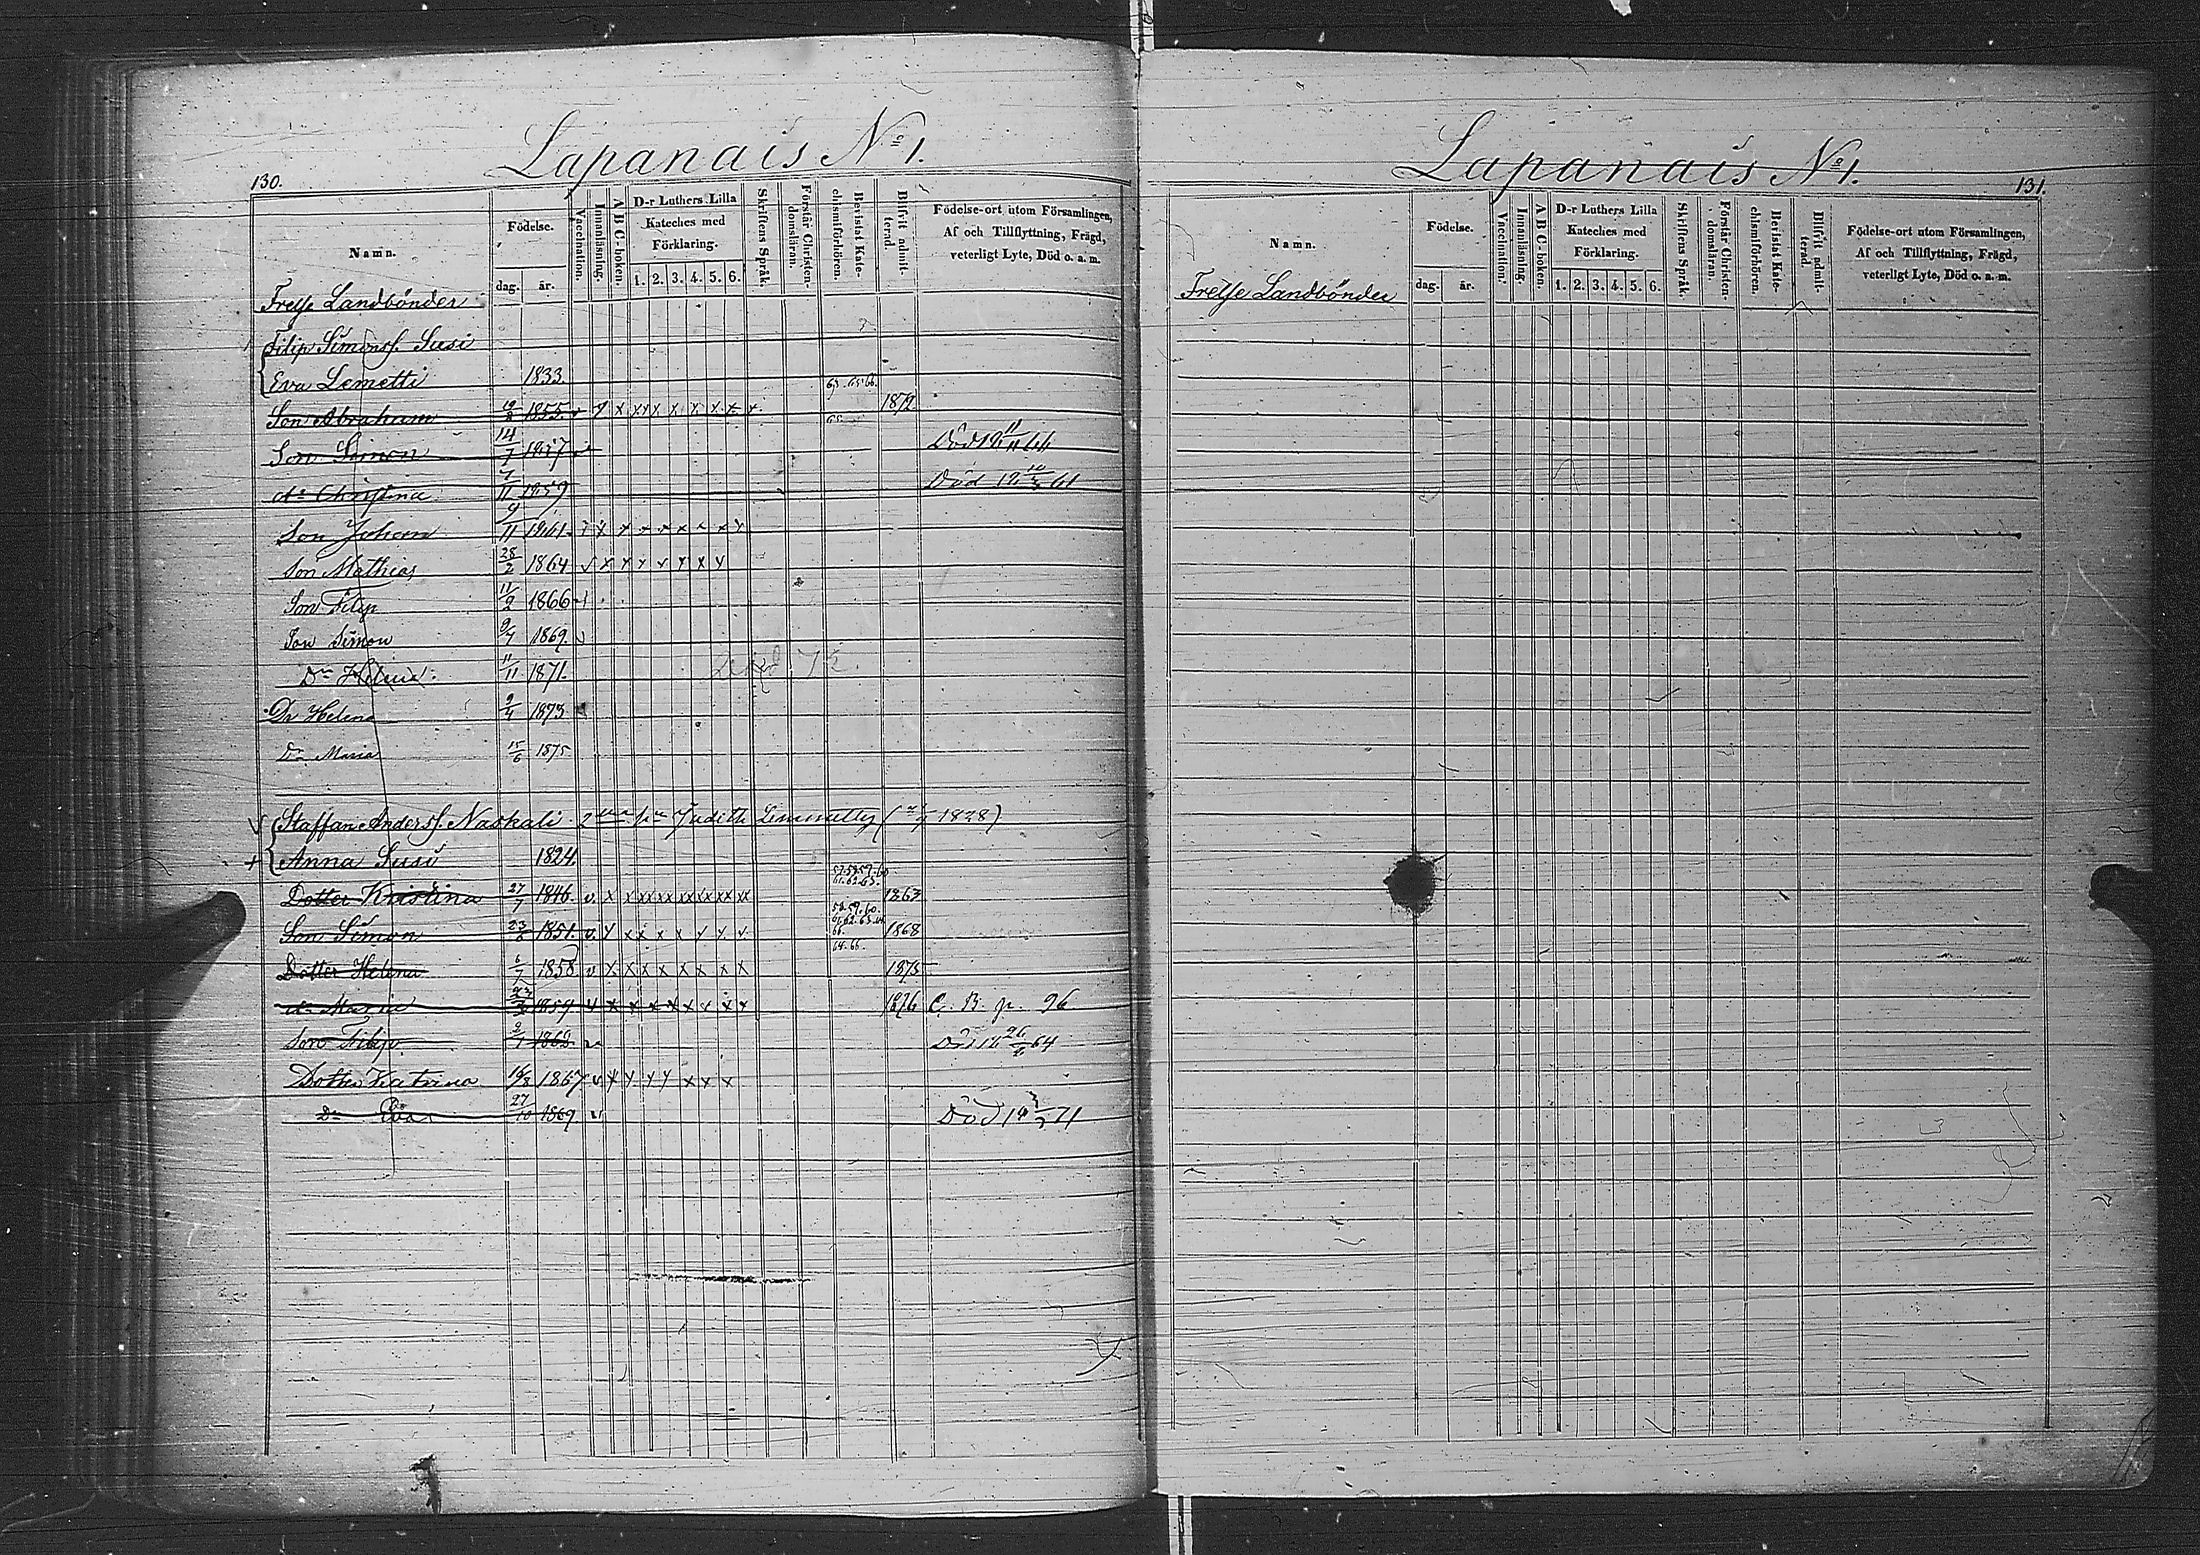 Lapanais No 1.
130.
Namn.
Födelse.
dag. år.
Vaccination.
Innanläsning.
A B C-boken.
D-r Luthers Lilla
Kateches med
Förklaring.
1. 2. 3. 4. 5. 6.
Skriftens Språk.
Förstår Christen-
domsläran.
Bevistat Kate-
chismiförhören.
Blifvit admit-
terad.
Födelse-ort utom Församlingen,
Af och Tillflyttning, Frägd,
veterligt Lyte, Död o. a. m.
Frelse Landbönder
Filip Simonss. Susi
Eva Lemetti 1833.
Son Abraham 19/8 1855. v y x x x x x x x x x 63. 65. 66. 1872
Son Simon 14/7 1857 Död
do Christina 7/11 1859 Död 61
Son Johan 9/11 1861.
Son Mathias 28/2 1864
Son Filip 11/2 1866
Son Simon 9/7 1869.
Dr Helena 11/11 1871.
Dr Helena 9/4 1873
Dr Maria 15/6 1875
Staffan Anderss. Naskali Judith 1828)
Anna Susi 1824.
Dotter Kristina 27/7 1846. 57. 58. 59. 60 61. 62. 63. 1863
Son Simon 23/6 1851. 58. 59. 60. 61. 62. 63. 64 66. 1868
Dotter Helena 6/7 1858. 64. 66. 1875
do Maria 1859 1876 C. B. p. 96
Son Filip 1862 64
Dotter Katrina 16/8 1867
Dr Eva 27/10 1869. Död 71
Lapanais No 1.
131.
Namn.
Födelse.
dag. år.
Vaccination.
Innanläsning.
A B C-boken.
D-r Luthers Lilla
Kateches med
Förklaring.
1. 2. 3. 4. 5. 6.
Skriftens Språk.
Förstår Christen-
domsläran.
Bevistat Kate-
chismiförhören.
Blifvit admit-
terad.
Födelse-ort utom Församlingen,
Af och Tillflyttning, Frägd,
veterligt Lyte, Död o. a. m.
Frelse Landbönder